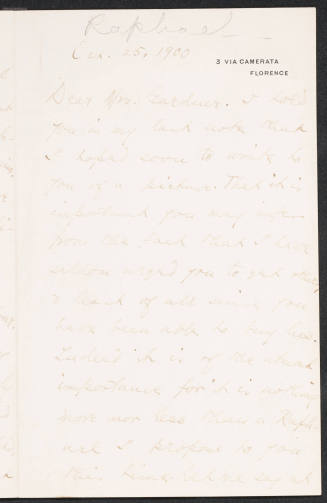 Raphael
Jan. 25, 1900
3 VIA CAMERATA
FLORENCE
Dear Mrs. Gardner. I told
you in my last note that
I hoped soon to write to
you of a picture. That it is
important you may infer
from the fact that I have
seldom urged you to get
& least of all since you
have been able to buy less.
Indeed it is of the utmost
importance for it is nothing
more nor less than a Raph-
ael I propose to you
this time. Let me say at